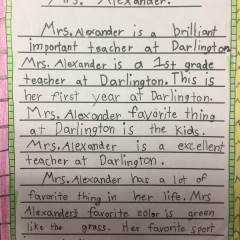 Mrs. Alexander.
Mrs. Alexander is a brilliant
important teacher at Darlington
Mrs. Alexander is a 1st grade
teacher at Darlington. This is
her first year at Darlington.
Mrs. Alexander favorite thing
at Darlington is the kids.
Mrs. Alexander is a excellent
teacher at Darlington.
Mrs. Alexander has a lot of
favorite thing in her life. Mrs
Alexanders favorite color is green
like the grass. Her favorite sport